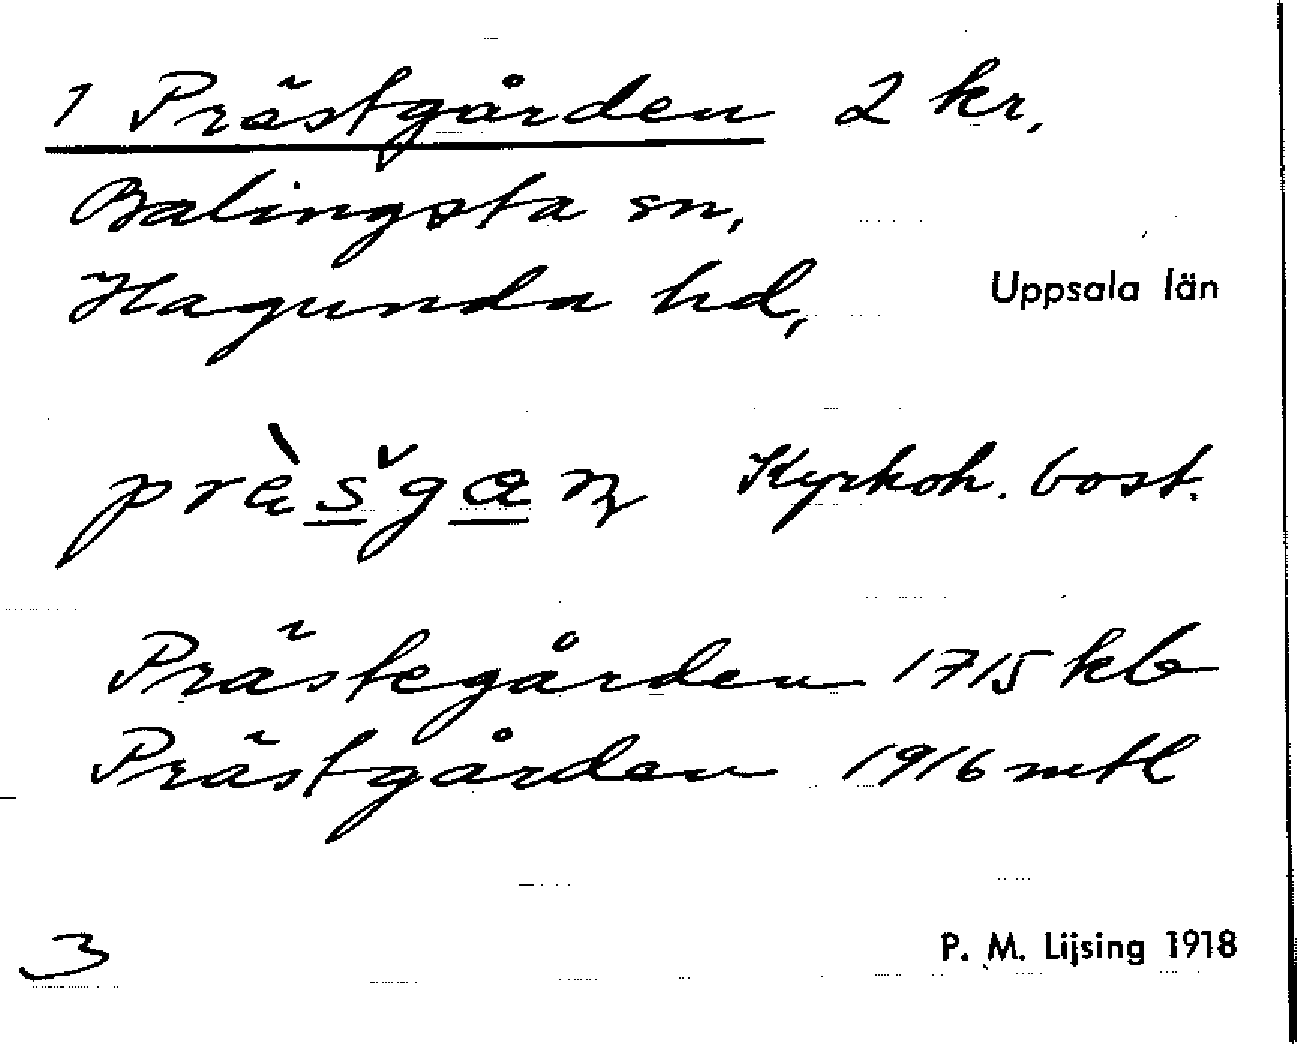 1 Prästgården 2 kr.
Balingsta sn,
Hagunda hd, Uppsala län
prὰšgaɳ Kyrkoh. bost.
Prästegården 1715 kb
Prästgården 1916 mtl
3 P. M. Lijsing 1918